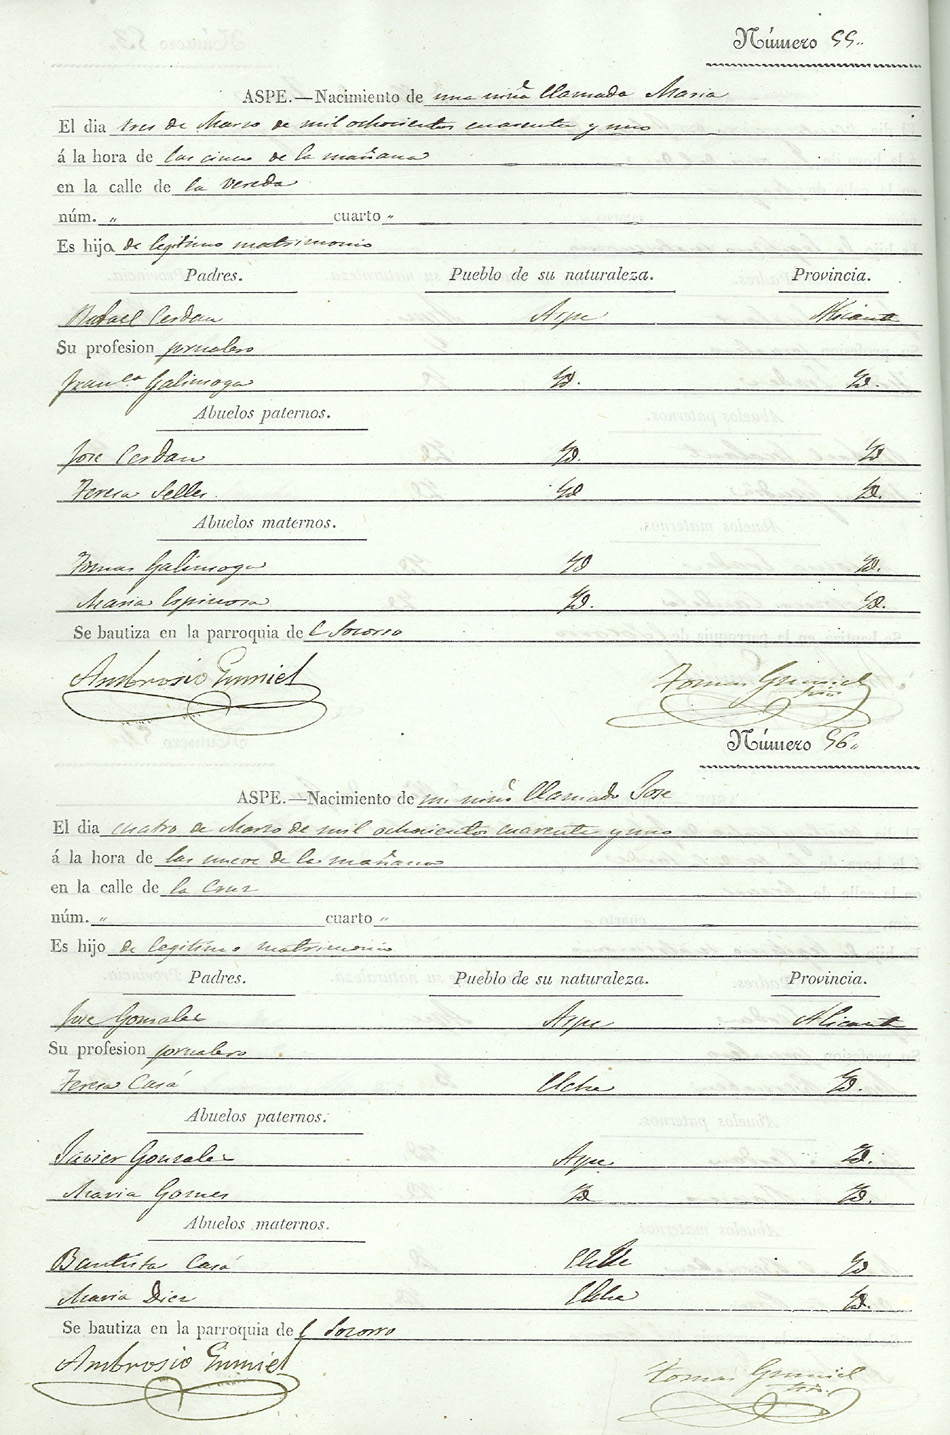 Número 55..
ASPE.—Nacimiento de una niña llamada Maria
El dia tres de Marzo de mil ochocientos cuarenta y uno
á la hora de las cinco de la mañana
en la calle de la Vereda
núm. „ cuarto „
Es hija de legitimo matrimonio
Padres. Pueblo de su naturaleza. Provincia.
Rafael Cerdan Aspe Alicante
Su profesion jornalero
Fran.ca Galinsoga Yd. Yd.
Abuelos paternos.
Jose Cerdan Yd. Yd.
Teresa Selles. Yd Yd.
Abuelos maternos.
Tomas Galinsoga Yd Yd.
Maria Espinosa Yd. Yd.
Se bautiza en la parroquia de l Socorro
Ambrosio Gumiel Tomas Gumiel
Número 56..
ASPE.—Nacimiento de un niño llamado Jose
El dia cuatro de Marzo de mil ochocientos cuarenta y uno
á la hora de las nueve de la mañana
en la calle de la Cruz
núm. „ cuarto „
Es hijo de legitimo matrimonio
Padres. Pueblo de su naturaleza. Provincia.
Jose Gonzalez Aspe Alicante
Su profesion jornalero
Teresa Casá Elche Yd.
Abuelos paternos.
Javier Gonzalez Aspe Yd.
Maria Gomes Yd Yd.
Abuelos maternos.
Bautista Casá Elche Yd
Maria Diez Elche Yd.
Se bautiza en la parroquia de l Socorro
Ambrosio Gumiel Tomas Gumiel